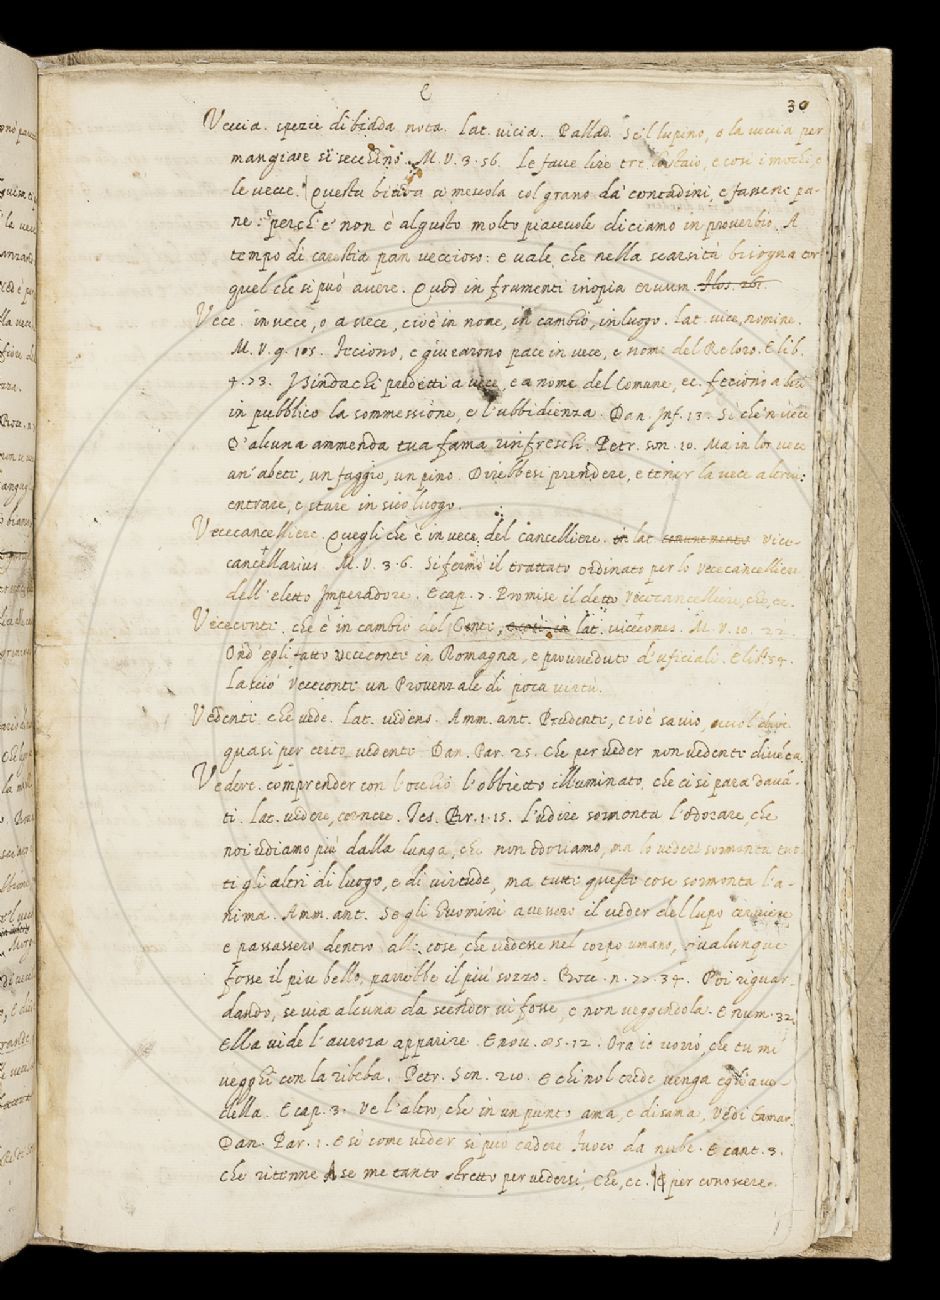 E
30
Veccia. spezie di biada nota. Lat. vicia. Pallad. Se il lupino, e la veccia per
mangiare si secchino. M. V. 3. 56. Le fave lire tre lo staio, e così i mochi, e
le vecce. Questa biada si mescola col grano da' contadini, e fassene pa-
ne: e perch'e' non è al gusto molto piacevole diciamo in proverbio. A
tempo di carestia pan veccioso: e vale, che nella scarsità bisogna tor
quel che si può avere. Quod in frumenti inopia ervum. Flos. 261.
Vece. in vece, o a vece, cioè in nome, in cambio, in luogo. Lat. vice, nomine.
M. V. 9. 105. Feciono, e giurarono pace in vece, e nome del Re loro. E lib.
4. 73. I Sindachi predetti a vece, e a nome del Comune, ec. feciono a lui
in pubblico la sommessione, e l'ubbidienza. Dan. Inf. 13. Sì che 'n vece
D'alcuna ammenda tua fama rinfreschi. Petr. son. 10. Ma in lor vece
un' abete, un faggio, un pino. Direbbesi prendere, e tener la vece altrui:
entrare, e stare in suo luogo.
Vececancelliere. Quegli che è in vece del cancelliere. in lat. comunemente vice-
cancellarius. M. V. 3. 6. Si fermò il trattato ordinato per lo vececancelliere
dell'eletto Imperadore. E cap. 7. Promise il detto vececancelliere, che, ec.
Vececonte. che è in cambio del Conte, lat. vicecomes. M. V. 10. 22.
Ond'egli fatto vececonte in Romagna, e provveduto d'uficiali. E list. 54.
Lasciò Vececonte un Provenzale di poca virtù.
Vedente. che vede. Lat. videns. Amm. ant. Prudente, cioè savio, vuol dire
quasi per certo vedente Dan. Par. 25. Che per veder non vedente diventa.
Vedere. comprender con l'occhio l'obbietto illuminato, che ci si para davā-
ti. Lat. videre, cernere. Tes. Br. 1. 15. L'udire sormonta l'odorare, che
noi udiamo più dalla lunga, che non odoriamo, ma lo vedere sormonta tut-
ti gli altri di luogo, e di virtude, ma tutte queste cose sormonta l'a-
nima. Amm. ant. Se gli Uomini avessero il veder del lupo cerviere,
e passassero dentro alle cose, che vedesse nel corpo umano, qualunque
fosse il piu bello, parrebbe il più sozzo. Bocc. n. 77. 34. Poi riguar-
dando, se via alcuna da scender vi fosse, e non veggendola. E num. 32.
Ella vide l'aurora apparire. E nov. 85. 12. Ora io vorrò, che tu mi
vegghi con la ribeba. Petr. Son. 210. E chi nol crede venga egli a ve-
della. E cap. 3. Ve l'altro, che in un punto ama, e disama, Vedi Tamar.
Dan. Par. 1. E sì come veder si può cadere Fuoco da nube. E cant. 3.
Che ritenne A se me tanto stretto per vedersi, Che, ec. per conoscere.